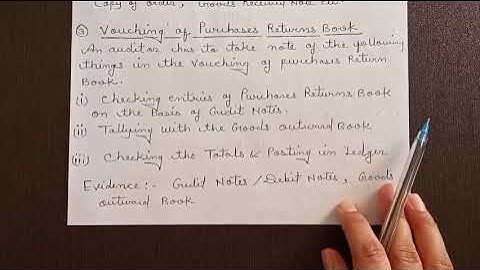 Copy of Order, Goods Received Note etc
③ Vouching of Purchases Returns Book
An auditor has to take note of the following
things in the Vouching of purchases Return
Book.
(i) Checking entries of Purchases Returns Book
on the Basis of Credit Notes.
(ii) Tallying with the Goods outward Book
(iii) Checking the Totals & Posting in Ledger
Evidence:- Credit Notes / Debit Notes, Goods
outward Book